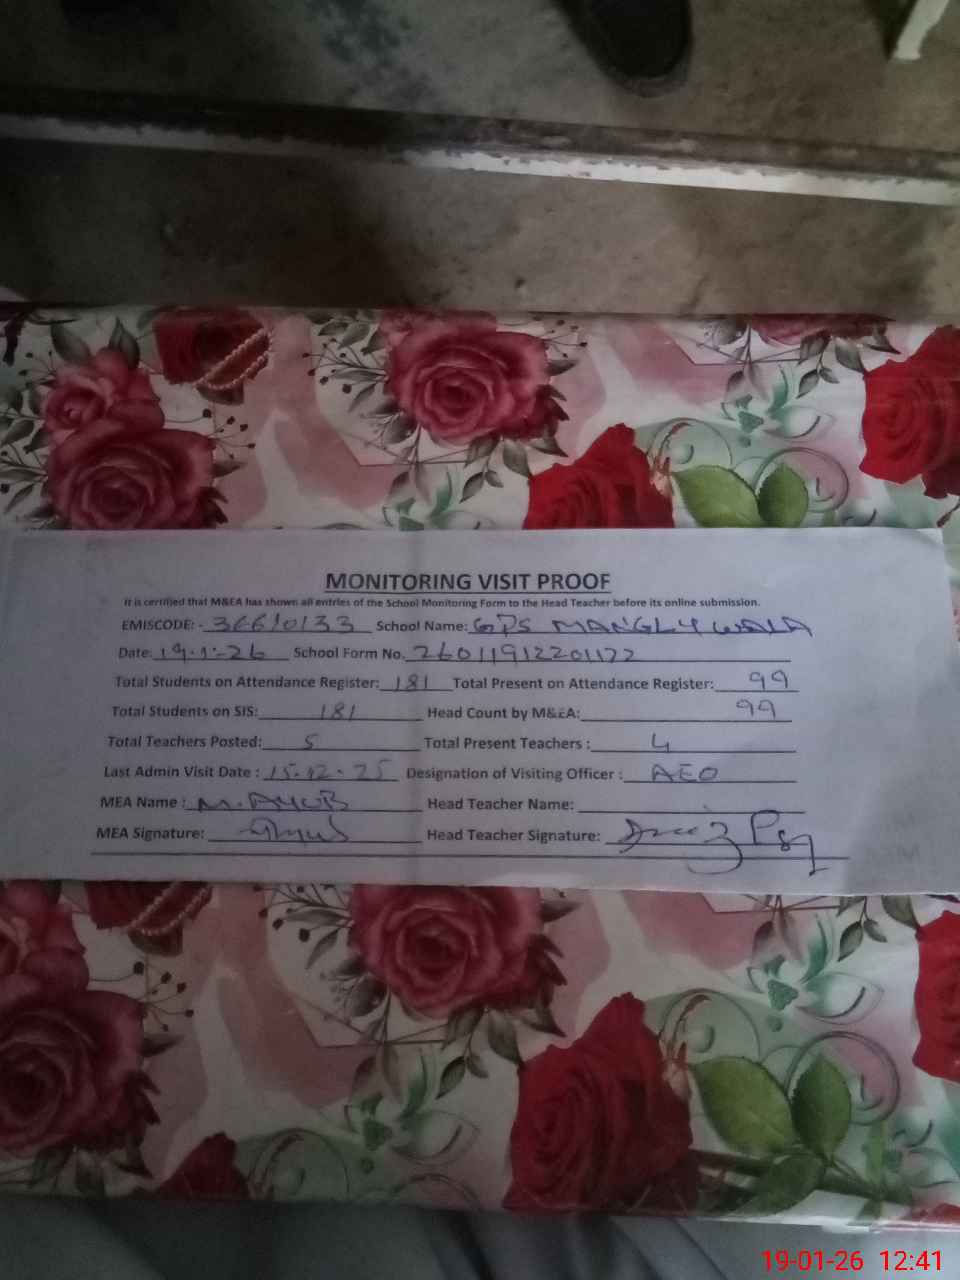 MONITORING VISIT PROOF
It is certified that M&EA has shown all entries of the School Monitoring Form to the Head Teacher before its online submission.
EMISCODE: - 36610133 School Name: GPS MANGLYWALA
Date: 19-1-26 School Form No. 26011912201172
Total Students on Attendance Register: 181 Total Present on Attendance Register: 99
Total Students on SIS: 181 Head Count by M&EA: 99
Total Teachers Posted: 5 Total Present Teachers : 4
Last Admin Visit Date : 15-12-25 Designation of Visiting Officer : AEO
MEA Name : M. AYUB Head Teacher Name:
MEA Signature: Head Teacher Signature:
19-01-26 12:41